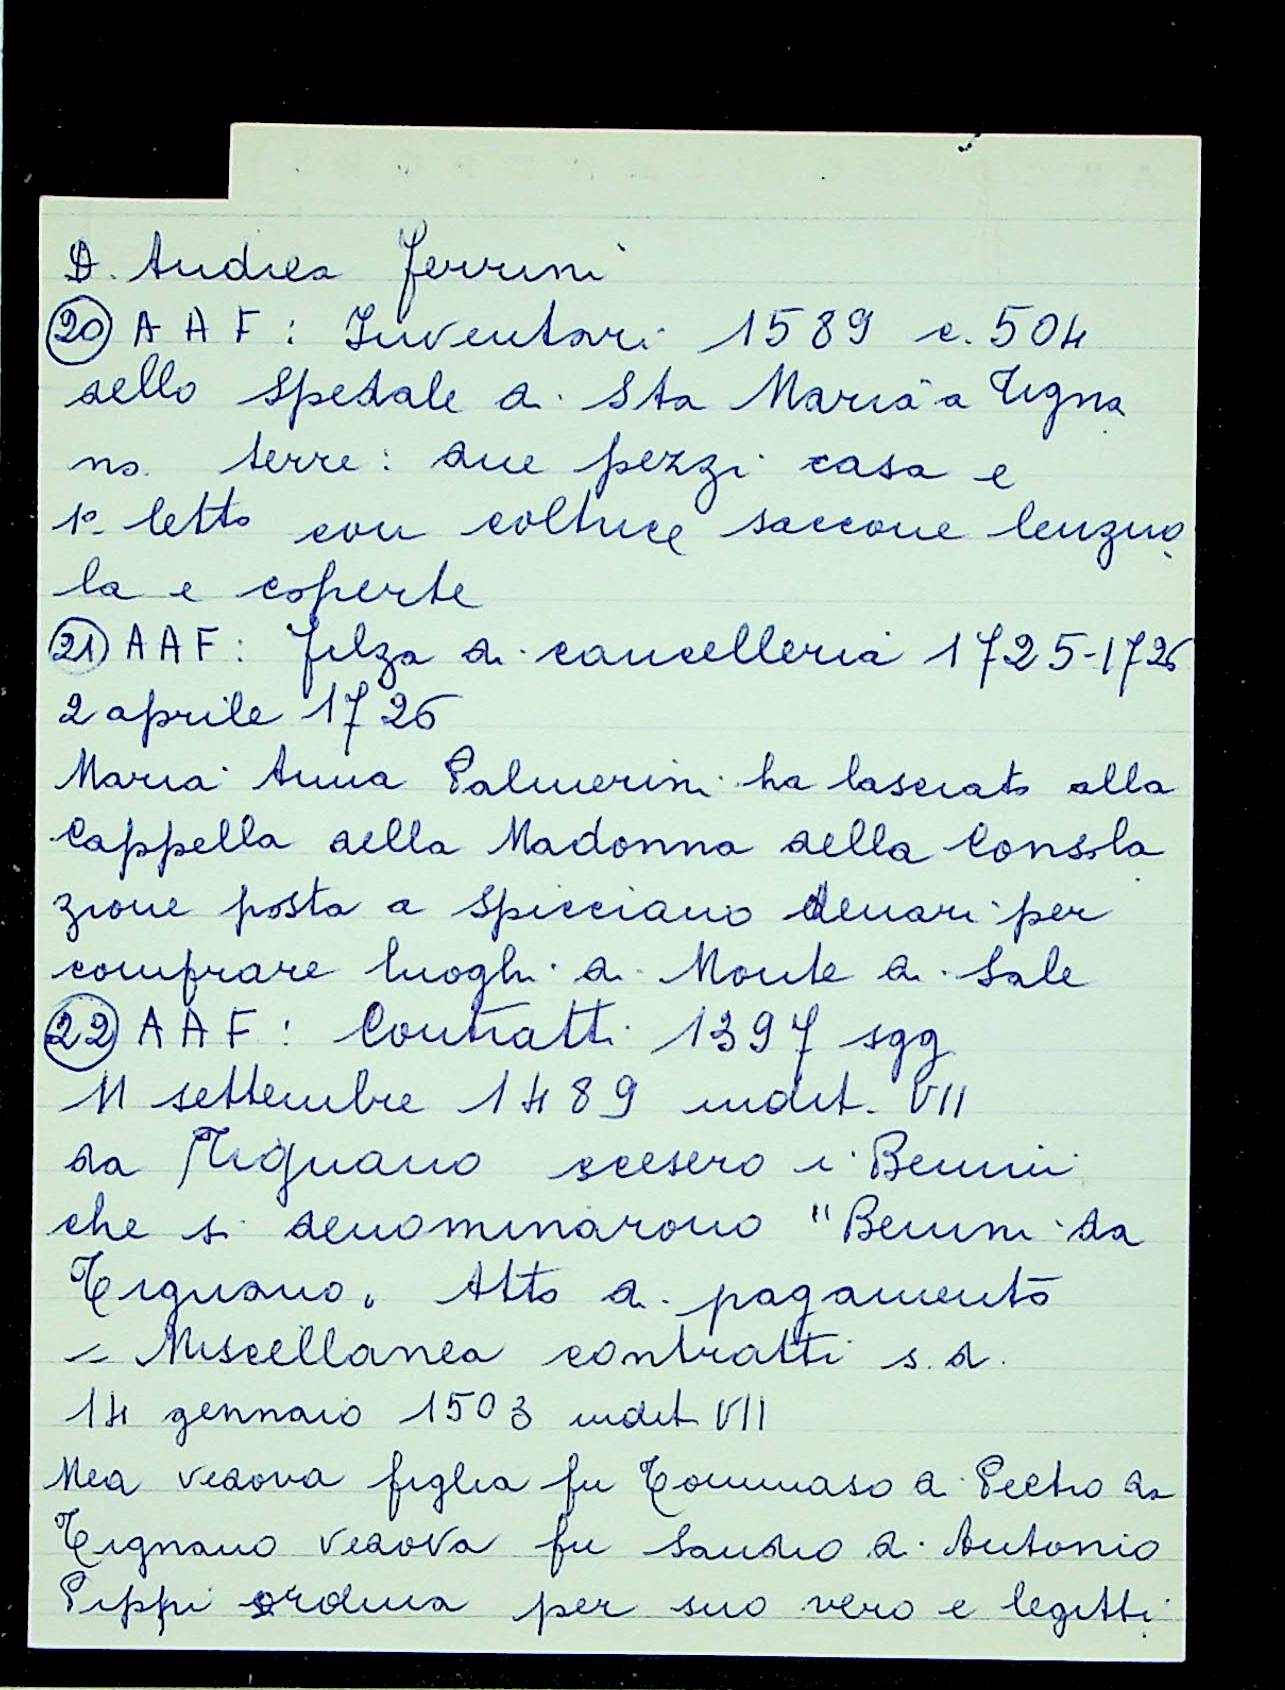 D. Andrea Ferrini
20 A A F: Inventari 1589 c. 504
dello spedale di Sta Maria a Tigna
no. terre: due pezzi casa e
1º letto con coltrice saccone lenzuo
la e coperte
21 A A F: filza di cancelleria 1725-1726
2 aprile 1726
Maria Anna Palmerini ha lasciato alla
Cappella della Madonna della Consola
zione posta a Spicciano denari per
comprare luoghi di Monte di Sale
22 A A F: Contratti 1397 sgg
11 settembre 1489 indit. VII
da Tignano scesero i Benini
che si denominarono "Benini da
Tignano. Atto di pagamento
= Miscellanea contratti s. d.
14 gennaio 1503 indit VII
Mea vedova figlia fu Tommaso di Pietro da
Tignano vedova fu Sandro di Antonio
Pippi ordina per suo vero e legitti